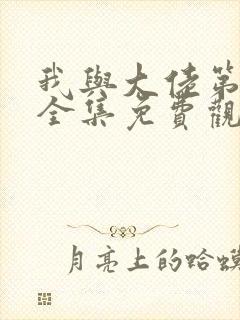 我與大佬第
全集免費觀
月亮上的蛤蟆